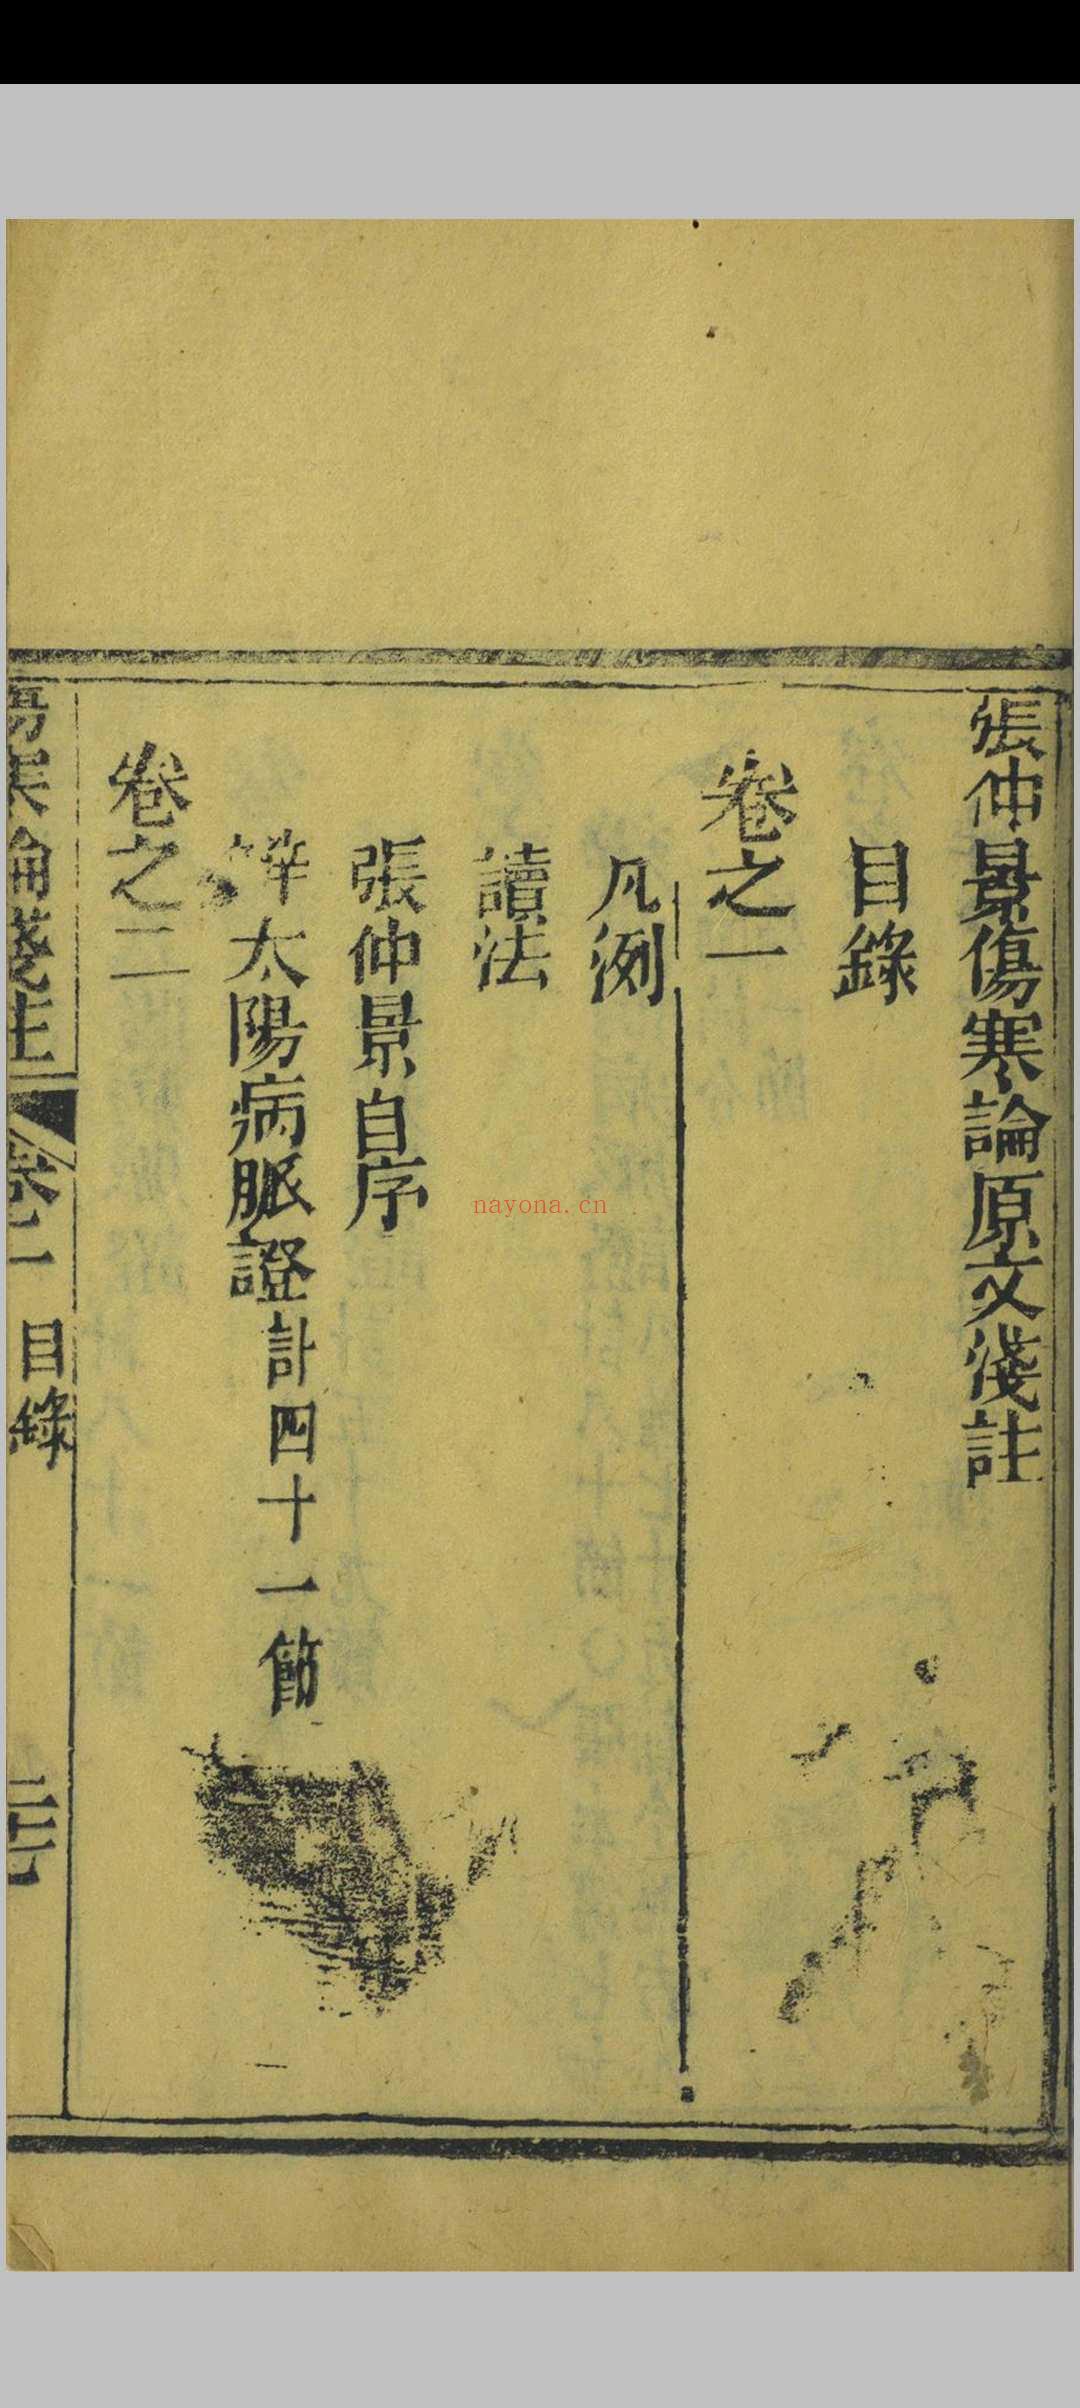 張仲景傷寒論原文淺註
目錄
卷之一
凡例
讀法
張仲景自序
辨太陽病脈證計四十一節
卷之二
傷寒論淺註 卷一 目錄
nayona.cn